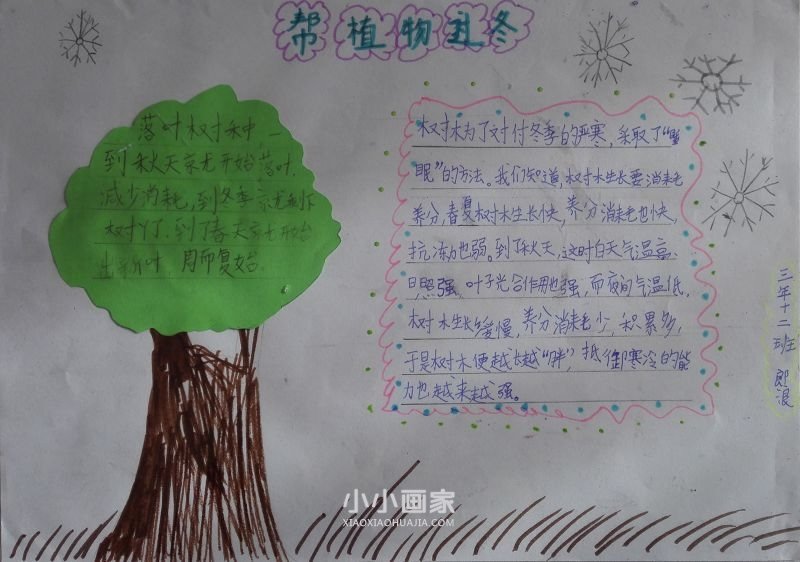 帮植物过冬
落叶树种,一
到秋天就开始落叶,
减少消耗,到冬季就剩下
树丫了.到了春天就开始
生新叶,周而复始.
树木为了对付冬季的严寒,采取了“冬
眠”的方法。我们知道,树木生长要消耗
养分,春夏树木生长快,养分消耗也快,
抗冻力也弱。到了秋天,这时白天气温高、
日照强,叶子光合作用也强,而夜间气温低,
树木生长缓慢,养分消耗少,积累多,
于是树木便越长越“胖”,抵御寒冷的能
力也越来越强。
三年十二班 郎浪
小小画家
XIAOXIAOHUAJIA.COM